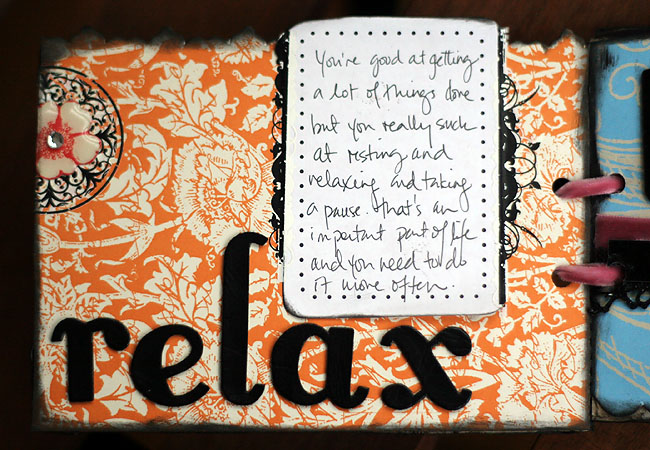 You're good at getting
a lot of things done
but you really suck
at resting and
relaxing and taking
a pause. that's an
important part of life
and you need to do
it more often.
relax